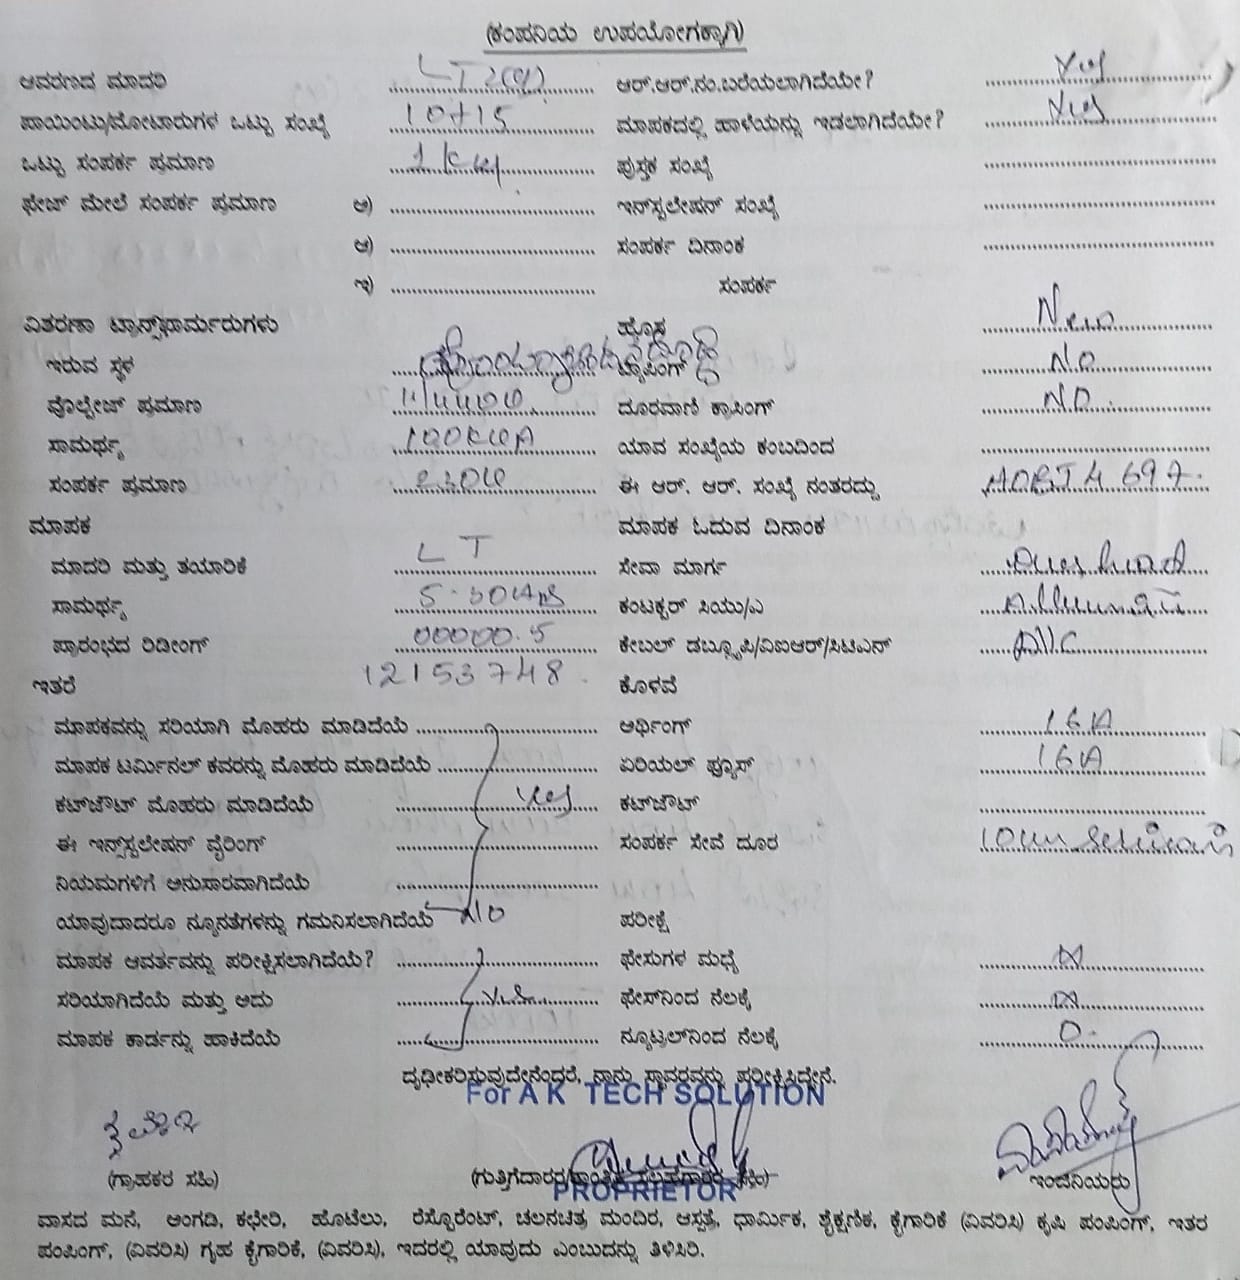 (ಕಂಪನಿಯ ಉಪಯೋಗಕ್ಕಾಗಿ)
ಆವರಣದ ಮಾದರಿ LT 2(a) ಆರ್.ಆರ್.ನಂ.ಬರೆಯಲಾಗಿದೆಯೇ? Yes
ಪಾಯಿಂಟು/ಮೋಟಾರುಗಳ ಒಟ್ಟು ಸಂಖ್ಯೆ 10+15 ಮಾಪಕದಲ್ಲಿ ಹಾಳೆಯನ್ನು ಇಡಲಾಗಿದೆಯೇ? Yes
ಒಟ್ಟು ಸಂಪರ್ಕ ಪ್ರಮಾಣ 1 kw ಪುಸ್ತಕ ಸಂಖ್ಯೆ
ಫೇಜ್ ಮೇಲೆ ಸಂಪರ್ಕ ಪ್ರಮಾಣ ಅ) ಇನ್‌ಸ್ಟಲೇಷನ್ ಸಂಖ್ಯೆ
ಆ) ಸಂಪರ್ಕ ದಿನಾಂಕ
ಇ) ಸಂಪರ್ಕ
ವಿತರಣಾ ಟ್ರಾನ್ಸ್‌ಫಾರ್ಮರುಗಳು ಹೊಸ New
ಇರುವ ಸ್ಥಳ ಟ್ಯಾಪಿಂಗ್ NO
ವೊಲ್ಟೇಜ್ ಪ್ರಮಾಣ ದೂರವಾಣಿ ಕ್ರಾಸಿಂಗ್ NO.
ಸಾಮರ್ಥ್ಯ 100KVA ಯಾವ ಸಂಖ್ಯೆಯ ಕಂಬದಿಂದ
ಸಂಪರ್ಕ ಪ್ರಮಾಣ 230V ಈ ಆರ್. ಆರ್. ಸಂಖ್ಯೆ ನಂತರದ್ದು
ಮಾಪಕ ಮಾಪಕ ಓದುವ ದಿನಾಂಕ
ಮಾದರಿ ಮತ್ತು ತಯಾರಿಕೆ LT ಸೇವಾ ಮಾರ್ಗ Over head
ಸಾಮರ್ಥ್ಯ ಕಂಟಕ್ಟರ್ ಸಿಯು/ಎ
ಪ್ರಾರಂಭದ ರಿಡೀಂಗ್ 00000.5 ಕೇಬಲ್ ಡಬ್ಲ್ಯೂಪಿ/ವಿಐಆರ್/ಸಿಟಿಎಸ್
ಇತರೆ 12153748. ಕೊಳವೆ
ಮಾಪಕವನ್ನು ಸರಿಯಾಗಿ ಮೊಹರು ಮಾಡಿದೆಯೆ ಆರ್ಥಿಂಗ್ 16A
ಮಾಪಕ ಟರ್ಮಿನಲ್ ಕವರನ್ನು ಮೊಹರು ಮಾಡಿದೆಯೆ ಏರಿಯಲ್ ಫ್ಯೂಸ್ 16A
ಕಟ್‌ಔಟ್ ಮೊಹರು ಮಾಡಿದೆಯೆ Yes ಕಟ್‌ಔಟ್
ಈ ಇನ್ಸ್‌ಸ್ಟಲೇಷನ್ ವೈರಿಂಗ್ ಸಂಪರ್ಕ ಸೇವೆ ದೂರ
ನಿಯಮಗಳಿಗೆ ಅನುಸಾರವಾಗಿದೆಯೆ
ಯಾವುದಾದರೂ ನ್ಯೂನತೆಗಳನ್ನು ಗಮನಿಸಲಾಗಿದೆಯೆ NO ಪರೀಕ್ಷೆ
ಮಾಪಕ ಆವರ್ತವನ್ನು ಪರೀಕ್ಷಿಸಲಾಗಿದೆಯೆ? ಫೇಸುಗಳ ಮಧ್ಯೆ
ಸರಿಯಾಗಿದೆಯೆ ಮತ್ತು ಅದು Yes ಫೇಸ್‌ನಿಂದ ನೆಲಕ್ಕೆ
ಮಾಪಕ ಕಾರ್ಡನ್ನು ಹಾಕಿದೆಯೆ ನ್ಯೂಟ್ರಲ್‌ನಿಂದ ನೆಲಕ್ಕೆ 0
ದೃಢೀಕರಿಸುವುದೇನೆಂದರೆ, ನಾನು ಸ್ಥಾವರವನ್ನು ಪರೀಕ್ಷಿಸಿದ್ದೇನೆ.
For A K TECH SOLUTION
(ಗ್ರಾಹಕರ ಸಹಿ) (ಗುತ್ತಿಗೆದಾರರ/ತಾಂತ್ರಿಕ ಸಲಹೆಗಾರರ ಸಹಿ) ಇಂಜಿನಿಯರು
PROPRIETOR
ವಾಸದ ಮನೆ, ಅಂಗಡಿ, ಕಛೇರಿ, ಹೊಟೆಲು, ರೆಸ್ಟೊರೆಂಟ್, ಚಲನಚಿತ್ರ ಮಂದಿರ, ಆಸ್ಪತ್ರೆ, ಧಾರ್ಮಿಕ, ಶೈಕ್ಷಣಿಕ, ಕೈಗಾರಿಕೆ (ವಿವರಿಸಿ) ಕೃಷಿ ಪಂಪಿಂಗ್, ಇತರ
ಪಂಪಿಂಗ್, (ವಿವರಿಸಿ) ಗೃಹ ಕೈಗಾರಿಕೆ, (ವಿವರಿಸಿ), ಇದರಲ್ಲಿ ಯಾವುದು ಎಂಬುದನ್ನು ತಿಳಿಸಿರಿ.